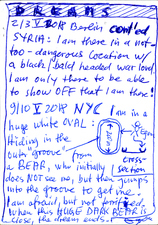 DREAMS
2/3 V 2018 Berlin cont'ed
SYRIA: I am there in a not-
too-dangerous location w/
a black/bald headed war lord
I am only there to be able
to show OFF that I am there!
9/10 V 2018 NYC I am in a
huge white OVAL:
Hiding in the
outer "groove" from
a BEAR, who initially
does NOT see me, but then jumps
into the groove to get me. I
am afraid, but not terrified.
When this HUGE DARK BEAR is
close, the dream ends.
cross-
section